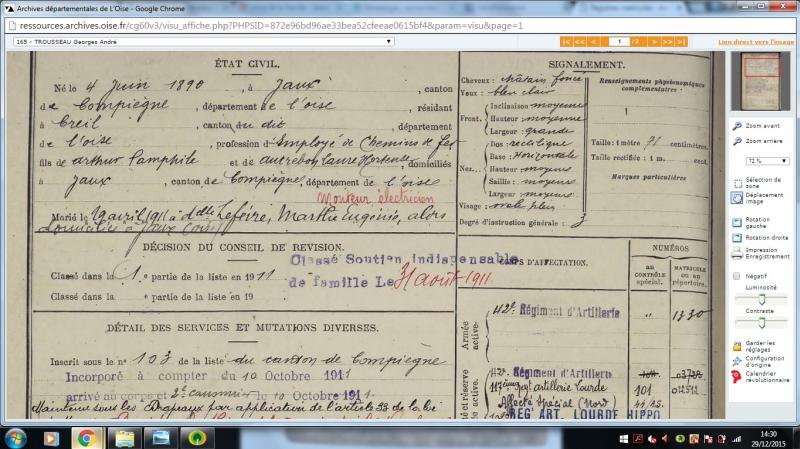 Archives départementales de L'Oise - Google Chrome
ressources.archives.oise.fr/cg60v3/visu_affiche.php?PHPSID=872e96bd96ae33bea52cfeeae0615bf4&param=visu&page=1
165 - TROUSSEAU Georges André
1 /2
Lien direct vers l'image
ÉTAT CIVIL.
Né le 4 Juin 1890, à Jaux, canton
de Compiègne, département de l'oise, résidant
à Creil, canton du dit, département
de l'oise, profession d'Employé de Chemins de fer
fils de arthur Pamphile et de Laure Hortense, domiciliés
à Jaux, canton de Compiègne, département de l'oise
Monteur électricien
Marié le 19 avril 1911 à dlle Lefèvre, Marthe Eugénie, alors
domiciliée à Jaux (oise)
DÉCISION DU CONSEIL DE REVISION.
Classé dans la 1e partie de la liste en 1911
Classé dans la e partie de la liste en 19
Classé Soutien indispensable
de famille Le 31 août 1911.
DÉTAIL DES SERVICES ET MUTATIONS DIVERSES.
Inscrit sous le n° 103 de la liste du canton de Compiègne
Incorporé à compter du 10 Octobre 1911
arrivé au corps et 2e canonnier le 10 Octobre 1911
Maintenu sous les Drapeaux par application de l'article 33 de la loi
SIGNALEMENT.
Cheveux : châtain foncé
Yeux : bleu clair
Front. Inclinaison moyenne
Hauteur moyenne
Largeur grande
Nez. Dos rectiligne
Base : Horizontale
Hauteur moyenne
Saillie : moyenne
Largeur moyenne
Visage : ovale plein
Degré d'instruction générale : 3
Renseignements physionomiques
complémentaires :
Taille : 1 mètre 71 centimètres.
Taille rectifiée : 1 m. cent.
Marques particulières
CORPS D'AFFECTATION.
NUMÉROS
AU CONTRÔLE spécial.
MATRICULE OU AU répertoire.
Armée active.
42e Régiment d'Artillerie " 1330
et réserve active.
42e Régiment d'Artillerie
117ème Régt artillerie Lourde 101 02512
Affecté Spécial (Nord)
REG' ART. LOURDE HIPPO
Zoom avant
Zoom arrière
72 %
Sélection de zone
Déplacement image
Rotation gauche
Rotation droite
Impression
Enregistrement
Négatif
Luminosité
Contraste
Garder les réglages
Configuration d'origine
Calendrier révolutionnaire
14:30
29/12/2015